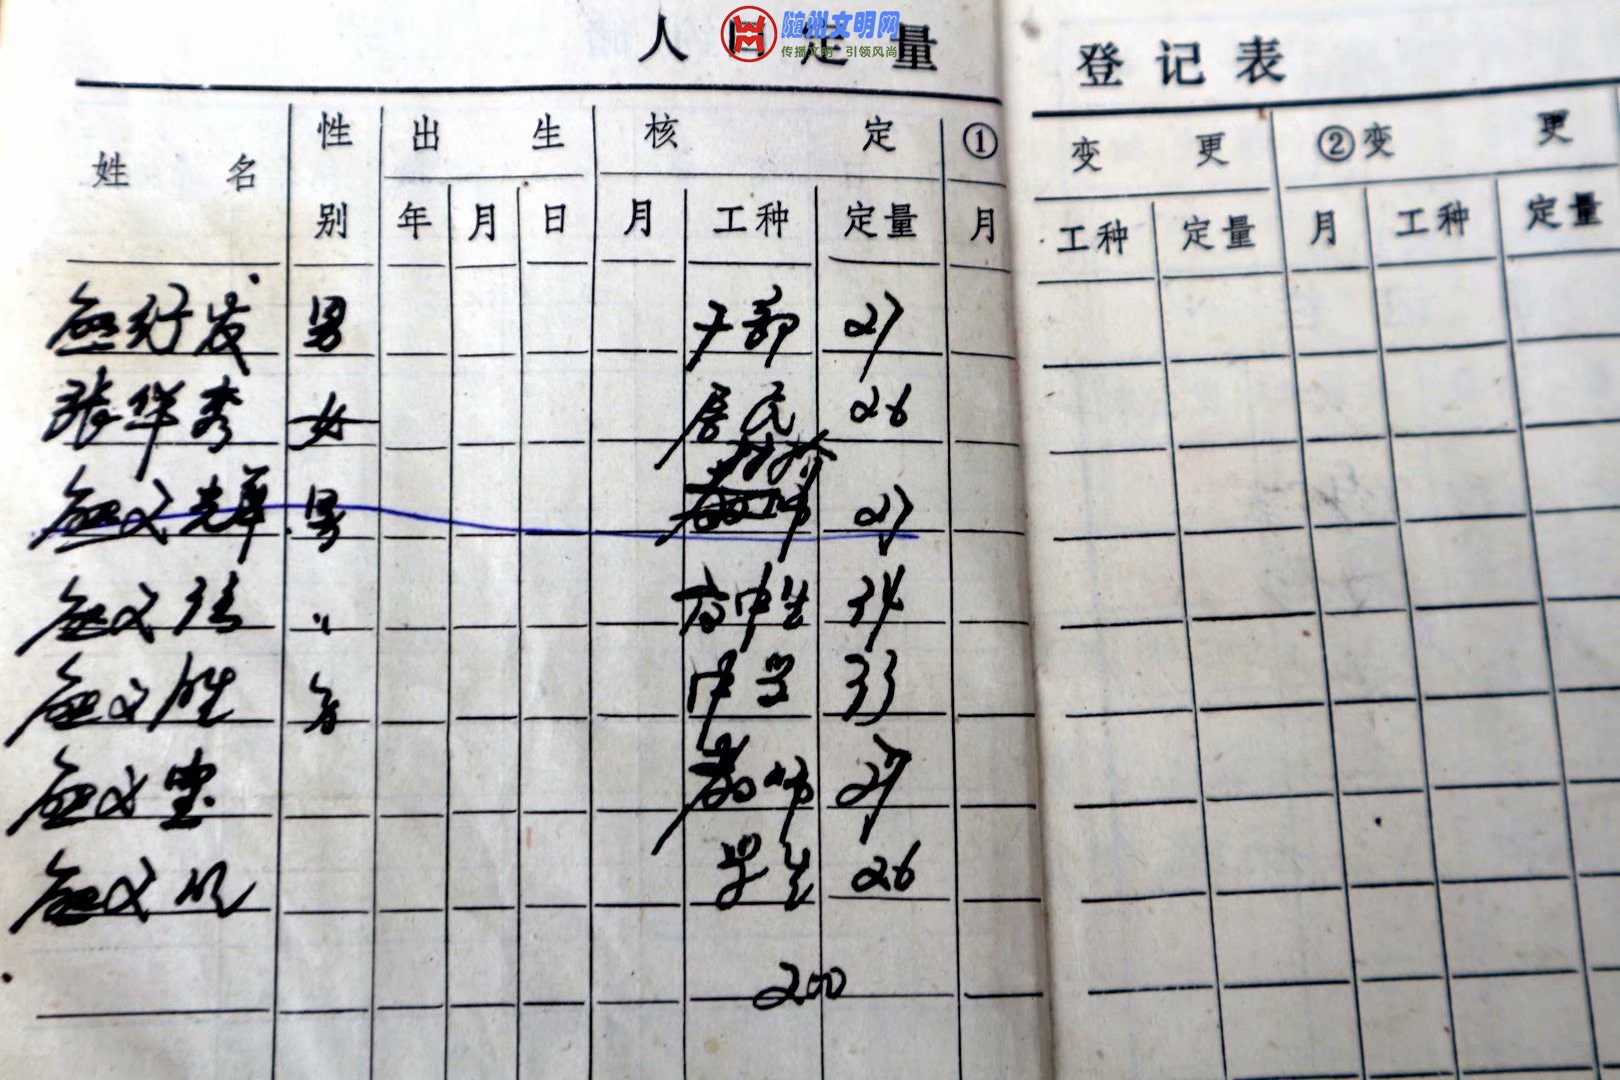 人口定量 登记表
随州文明网
传播文明 引领风尚
姓名 性别 出生 核定 ① 变更 ②变更
年 月 日 月 工种 定量 月 工种 定量 月 工种 定量
发 男 干部 27
张华秀 女 居民 26
文 男 27
文 〃 高中生 34
文胜 中学 33
文 教师 27
文 学生 26
200